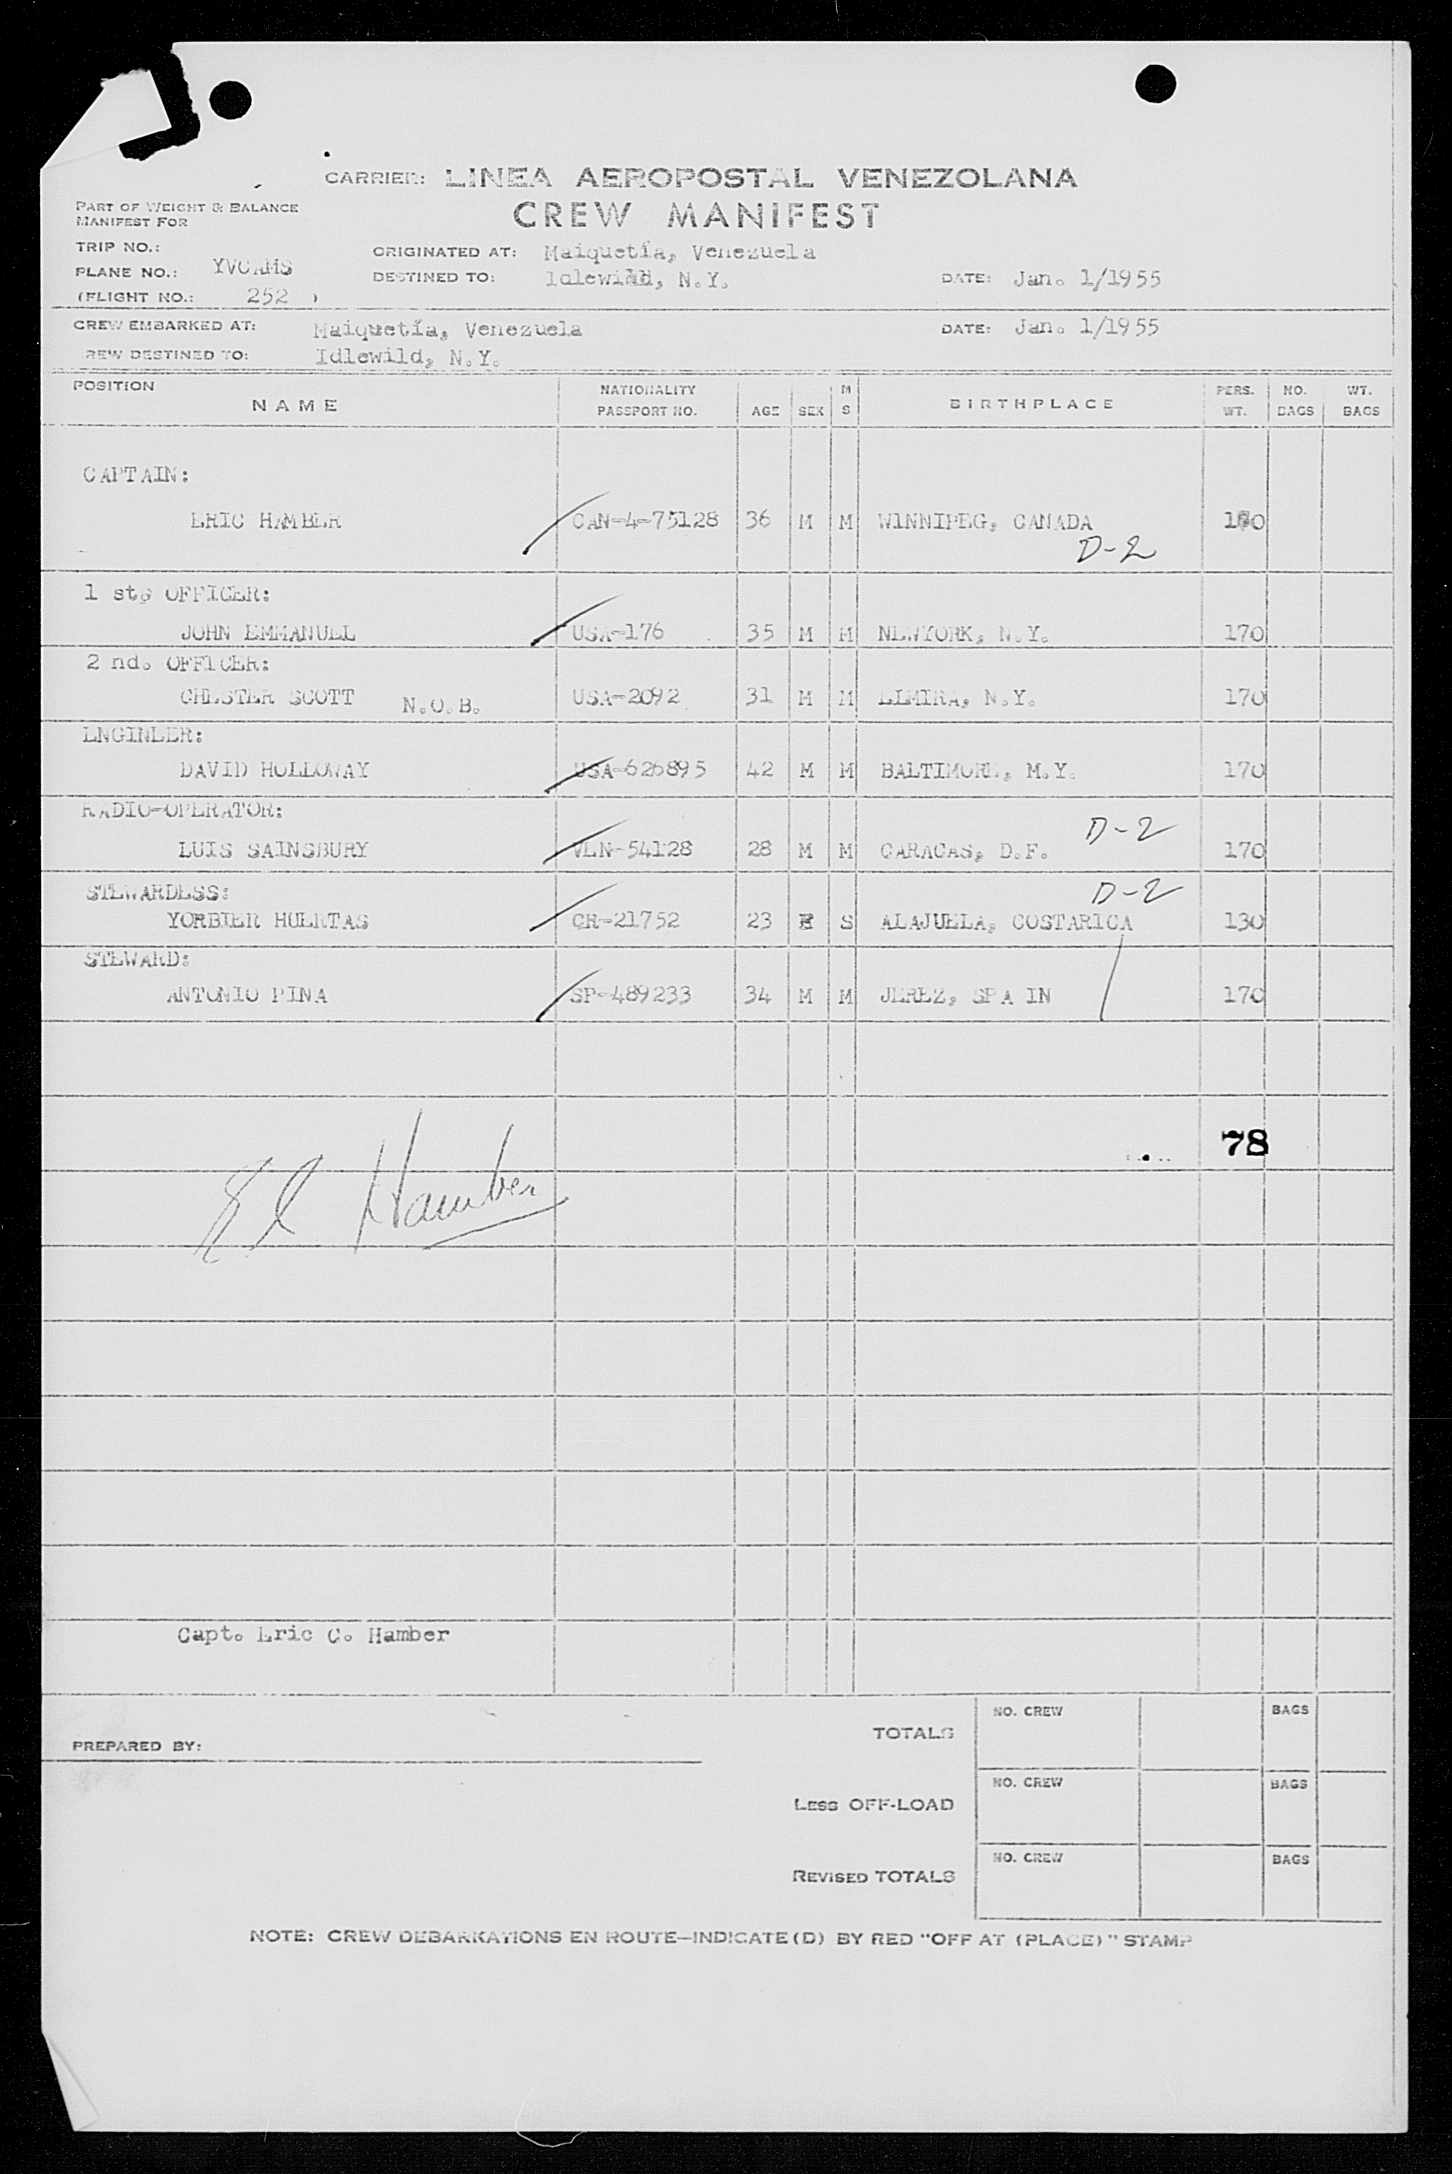 CARRIER: LINEA AEROPOSTAL VENEZOLANA
CREW MANIFEST
PART OF WEIGHT & BALANCE
MANIFEST FOR
TRIP NO.:
ORIGINATED AT: Maiquetía, Venezuela
PLANE NO.:
DESTINED TO: Idlewild, N.Y. DATE: Jan. 1/1955
(FLIGHT NO.: 252 )
CREW EMBARKED AT: Maiquetía, Venezuela DATE: Jan. 1/1955
REW DESTINED TO: Idlewild, N.Y.
POSITION NAME NATIONALITY PASSPORT NO. AGE SEX M S BIRTHPLACE PERS. WT. NO. BAGS WT. BAGS
CAPTAIN:
ERIC HAMBER CAN-4-75128 36 M M WINNIPEG, CANADA
D-2
1 st. OFFICER:
JOHN EMMANUEL USA-176 35 M M NEWYORK, N.Y. 170
2 nd. OFFICER:
CHESTER SCOTT N.O.B. USA-2092 31 M M ELMIRA, N.Y. 170
ENGINEER:
DAVID HOLLOWAY USA-626895 42 M M BALTIMORE, M.Y. 170
RADIO-OPERATOR:
D-2
LUIS SAINSBURY VEN-54128 28 M M CARACAS, D.F. 170
STEWARDESS:
D-2
YORBIER HUERTAS CR-21752 23 F S ALAJUELA, COSTARICA 130
STEWARD:
ANTONIO PINA SP-489233 34 M M JEREZ, SPA IN 170
78
E C Hamber
Capt. Eric C. Hamber
PREPARED BY:
TOTALS NO. CREW BAGS
LESS OFF-LOAD NO. CREW BAGS
REVISED TOTALS NO. CREW BAGS
NOTE: CREW DEBARKATIONS EN ROUTE—INDICATE (D) BY RED "OFF AT (PLACE)" STAMP